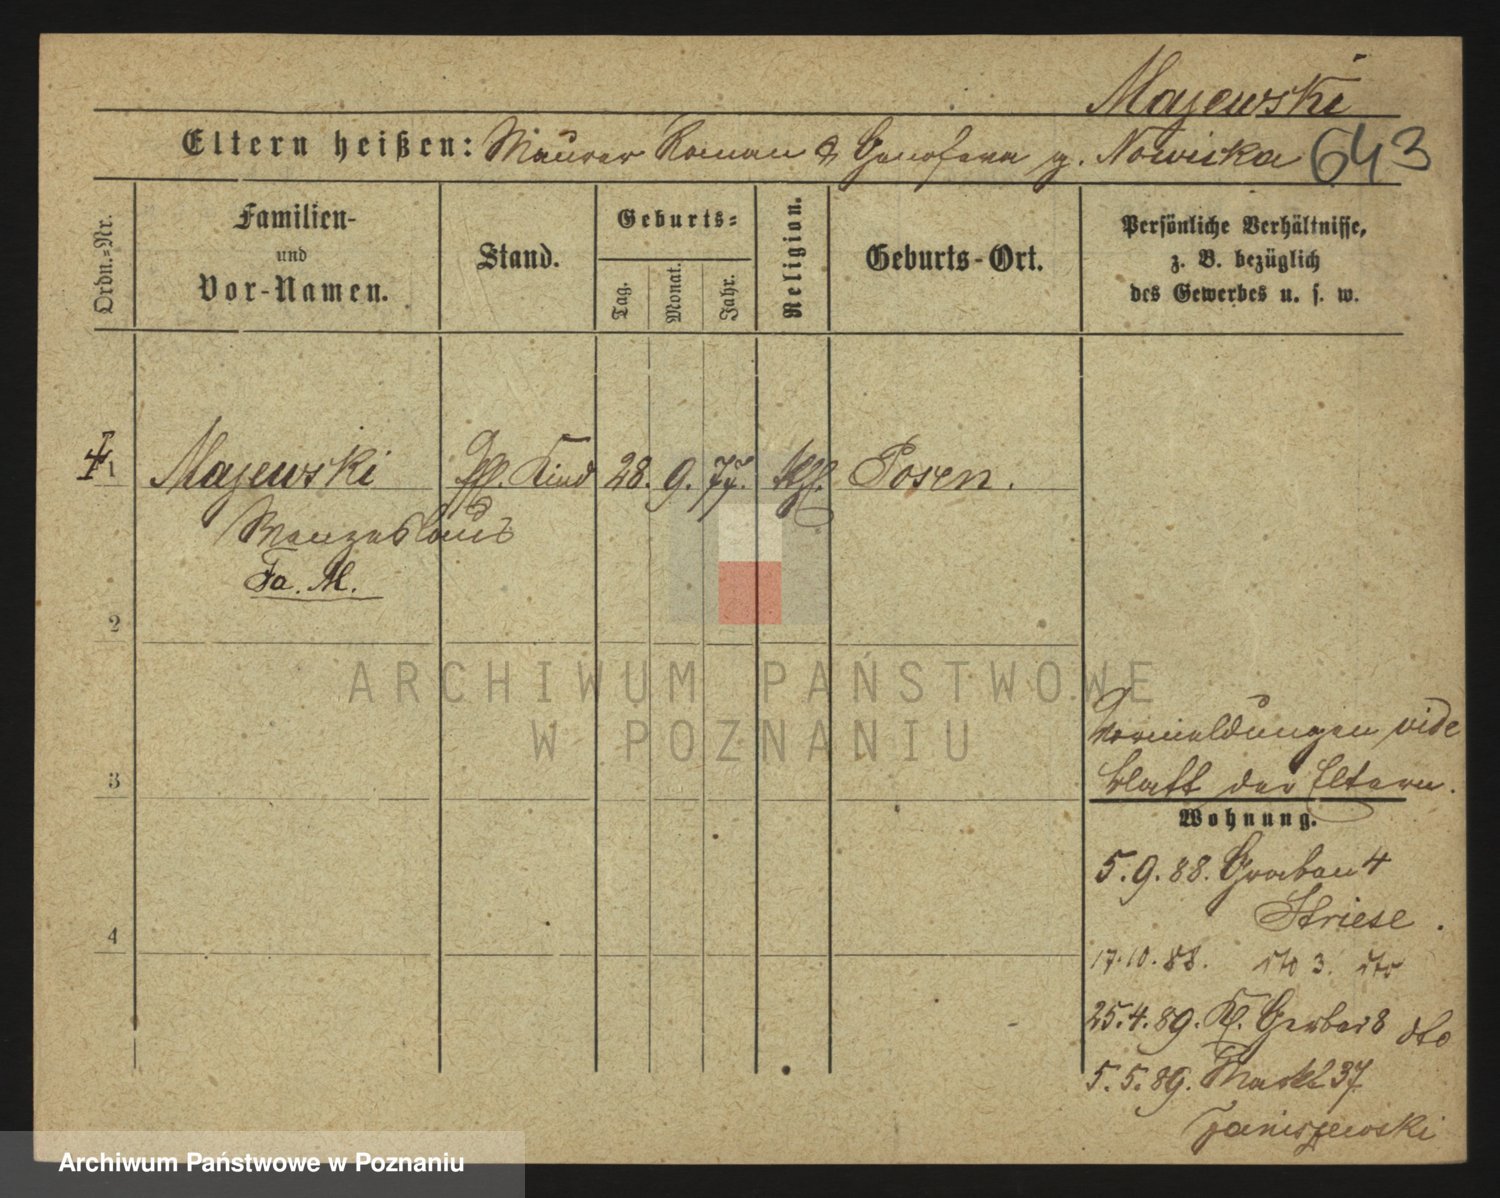 Majewski
Eltern heißen: Maurer Roman & Genofeva g. Nowicka 643
Ordn.=Nr.
Familien-
und
Vor-Namen.
Stand.
Geburts=
Tag.
Monat.
Jahr.
Religion.
Geburts-Ort.
Persönliche Verhältnisse,
z. B. bezüglich
des Gewerbes u. s. w.
1 Majewski Kind 28. 9. 77. kth. Posen.
Wenzeslaus
Fa. M.
2
3
4
Vormeldungen vide
blatt der Eltern.
Wohnung.
5.9.88. Graben 4
Striese.
17.10.88. dto 3. dto
25.4.89. Kl. Gerber 8 dto
5.5.89. Markt 37
Janiszewski
ARCHIWUM PAŃSTWOWE
W POZNANIU
Archiwum Państwowe w Poznaniu